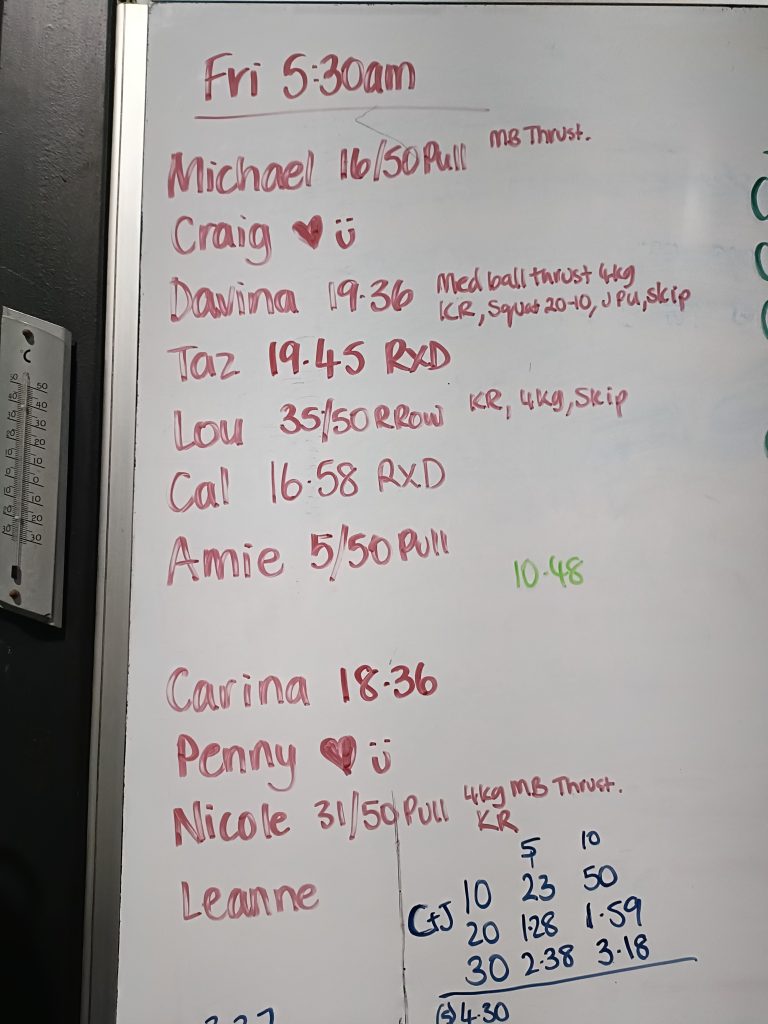 Fri 5:30am
Michael 16/50 Pull MB Thrust.
Craig ♥ ü
Davina 19.36 Med ball thrust 4kg
KR, Squat 20-10, JPU, skip
Taz 19.45 RXD
Lou 35/50 RROW KR, 4kg, Skip
Cal 16.58 RXD
Amie 5/50 Pull
10.48
Carina 18.36
Penny ♥ ü
Nicole 31/50 Pull 4kg MB Thrust.
KR
Leanne
5 10
C+J 10 23 50
20 1.28 1.59
30 2.38 3.18
(5) 4.30
°C